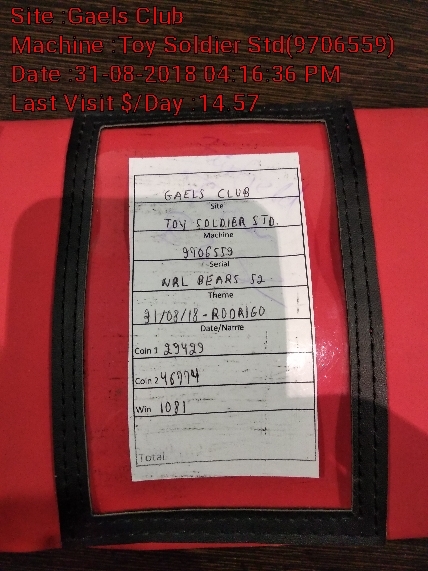 Site :Gaels Club
Machine :Toy Soldier Std(9706559)
Date :31-08-2018 04:16:36 PM
Last Visit $/Day :14.57
GAELS CLUB
Site
TOY SOLDIER STD.
Machine
9706559
Serial
NRL BEARS 52
Theme
31/08/18-RODRIGO
Date/Name
Coin 1 29429
Coin 2 46974
Win 1081
Total